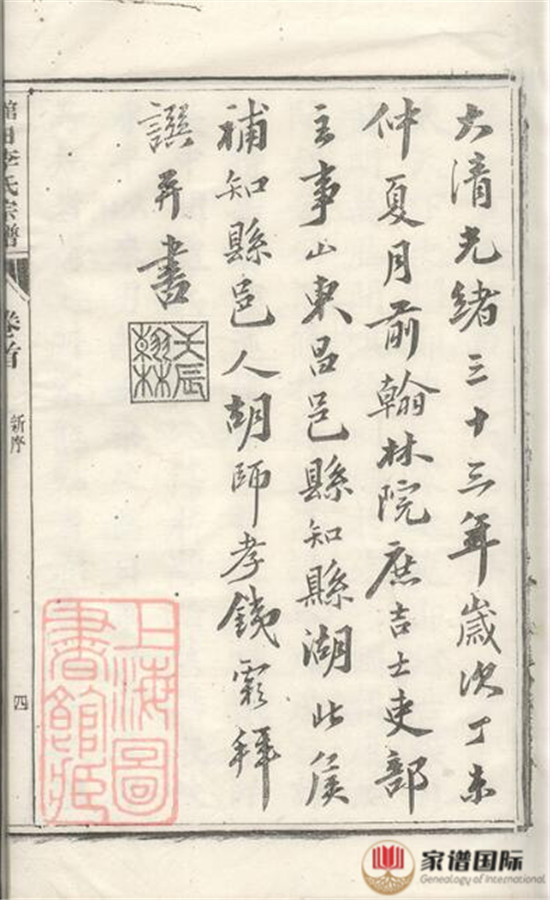 大清光緒三十三年歲次丁未
仲夏月前翰林院庶吉士吏部
主事山東昌邑縣知縣湖北侯
補知縣邑人胡師孝鐵彩拜
譔并書
壬辰
翰林
李氏宗譜
卷首
新序
四
上海圖
書館藏
家谱国际
Genealogy of International